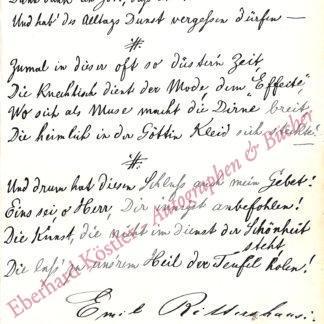 Und hat' des Alltags Dunst vergessen dürfen —
Zumal in dieser oft so düstern Zeit,
Die knechtisch dient der Mode, dem "Effecte",
Wo sich als Muse macht die Dirne breit,
Die heimlich in der Göttin Kleid sich steckte!
Und drum hat diesen Schluß auch mein Gebet:
Eins sei, o Herr, Dir innigst anbefohlen!
Die Kunst, die nicht im Dienst der Schönheit
steht,
Die laß' in uns'rem Heil der Teufel holen!
Emil Rittershaus.
Eberhard Köstler Autographen & Bücher